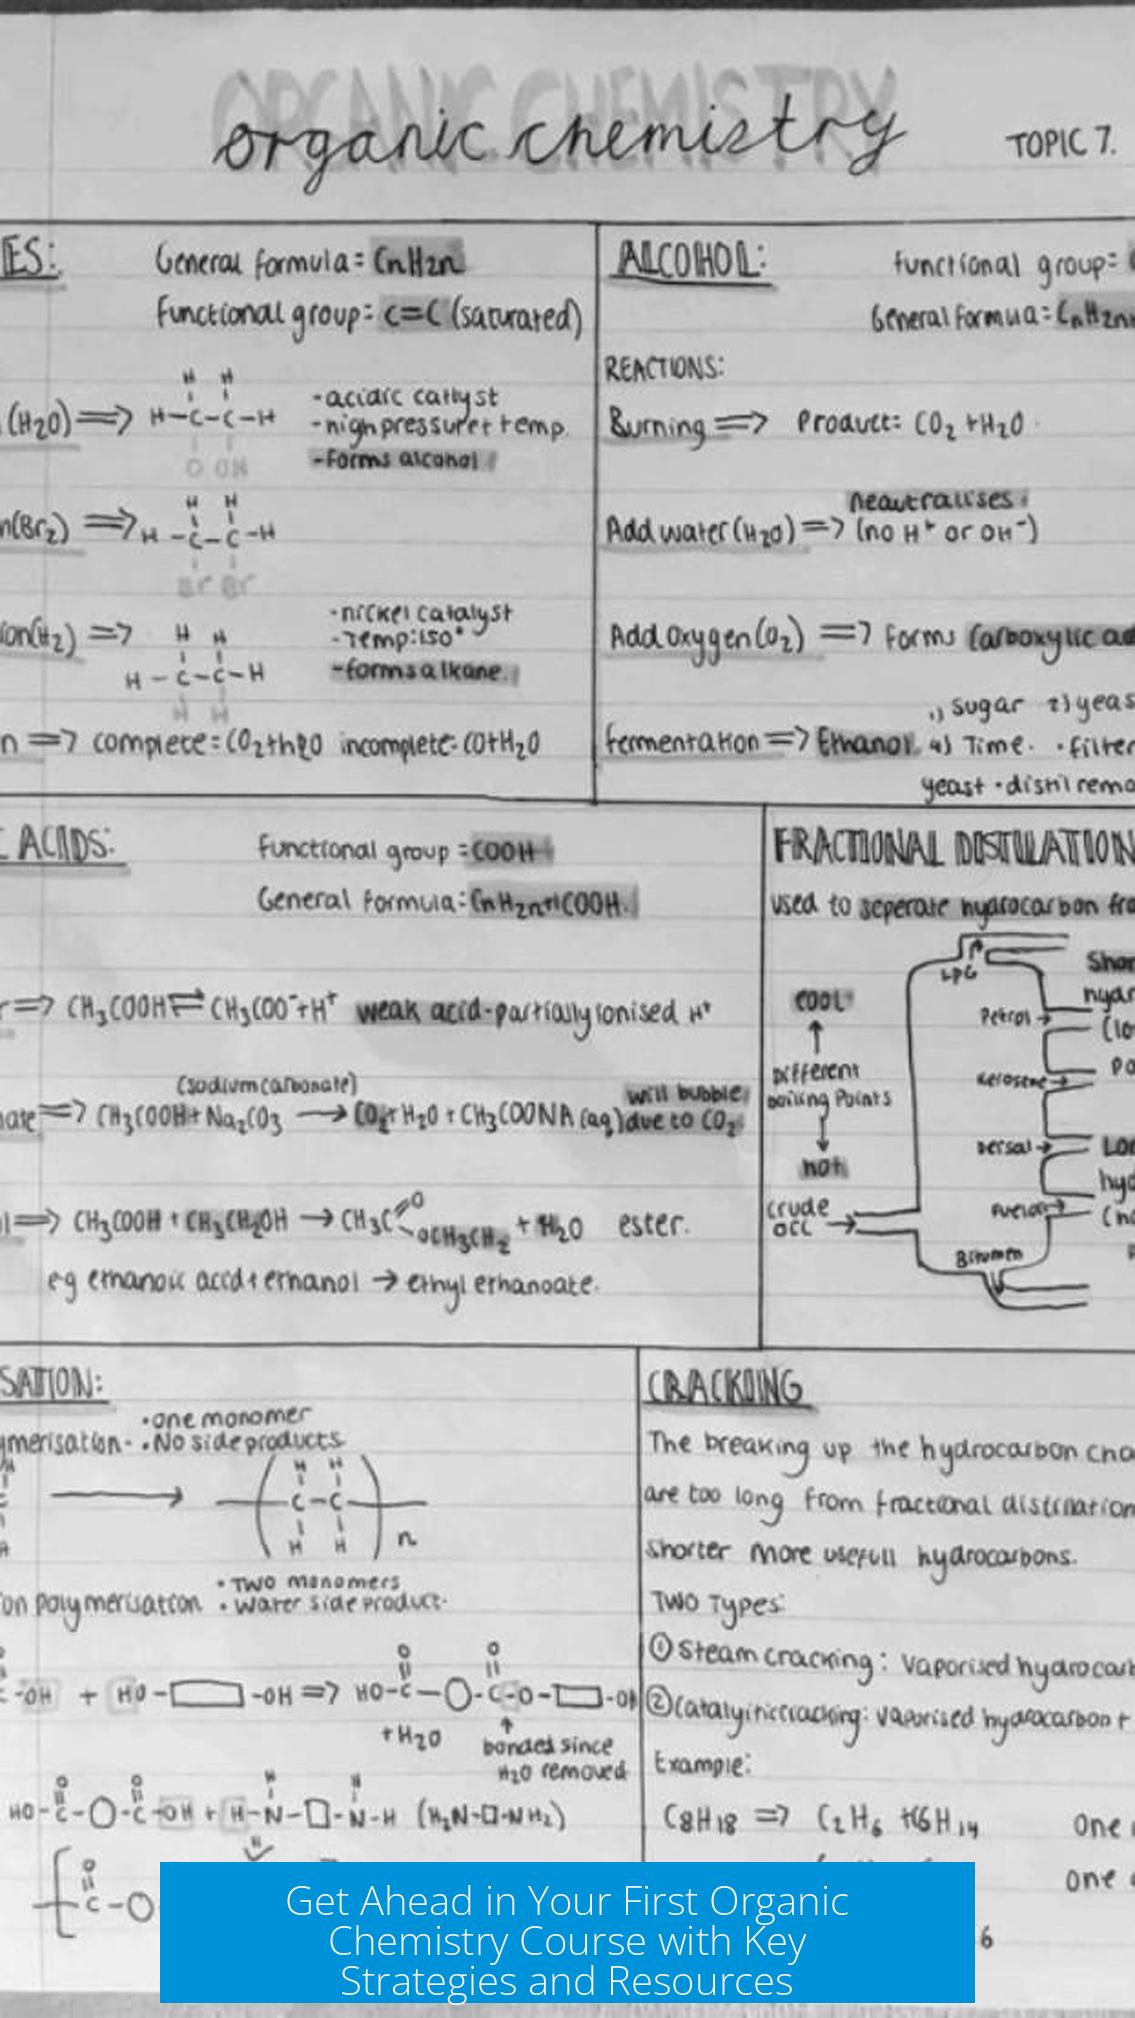 ORGANIC CHEMISTRY
organic chemistry
TOPIC 7.
ES:
General formula = CnH2n
Functional group: C=C (saturated)
(H2O) ⟹ H-C-C-H
H H
O OH
-acidic catlyst
-high pressure + temp.
-forms alcohol
n(Br2) ⟹ H-C-C-H
H H
Br Br
ion(H2) ⟹
H H
H-C-C-H
H H
-nickel catalyst
-Temp: 150°
-forms alkane.
n ⟹ complete = CO2+H2O incomplete = CO+H2O
ALCOHOL:
functional group =
General formula = CnH2n+
REACTIONS:
Burning ⟹ Product: CO2 + H2O
neautralises.
Add water (H2O) ⟹ (no H⁺ or OH⁻)
Add oxygen (O2) ⟹ forms Carboxylic ac
1) sugar 2) yeas
fermentation ⟹ Ethanol. 4) Time. •filter
yeast •distil remo
C ACIDS:
functional group = COOH
General formula = CnH2n+1COOH.
r ⟹ CH3COOH ⇌ CH3COO⁻ + H⁺ weak acid - partially ionised H⁺
(sodium carbonate)
will bubble
nate ⟹ CH3COOH + Na2CO3 → CO2 + H2O + CH3COONA (aq) due to CO2
l ⟹ CH3COOH + CH3CH2OH → CH3C=O OCH3CH2 + H2O ester.
eg ethanoic acid + ethanol → ethyl ethanoate.
FRACTIONAL DISTILLATION
used to seperate hydrocarbon fra
COOL
↑
Different
boiling Points
↓
hot
crude
oil →
LPG
Petrol →
Kerosene →
Diesel →
Fuel oil →
Bitumen
Shor
hydr
(lo
po
Lon
hyd
(h
p
SATION:
•one monomer
ymerisation- •No side products
H
C
H
→ ( H H
-C-C-
H H ) n
on polymerisation
•Two monomers
•Water side product.
C-OH + HO-▭-OH ⟹ HO-C(=O)-O-C(=O)-O-▭-OH
+ H2O
↑
bonded since
H2O removed
HO-C(=O)-O-C(=O)-OH + H-N(H)-□-N(H)-H (H2N-□-NH2)
[C(=O)-O
CRACKING
The breaking up the hydrocarbon cha
are too long from fractional distillation
shorter more usefull hydrocarbons.
Two Types:
① Steam cracking: vaporised hydrocarb
② Catalyitic cracking: vaporised hydrocarbon +
Example:
C8H18 ⟹ C2H6 + C6H14
one
one
6
Get Ahead in Your First Organic
Chemistry Course with Key
Strategies and Resources